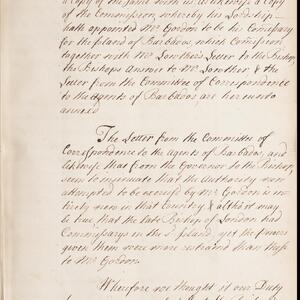 a Copy of the same with as likewise a Copy
of the Commission whereby his Lordship
hath appointed Mr Gordon to be his Comissary
for the Island of Barbados, which Comission
together with Mr Lowther's Letter to the Bishop
the Bishops Answer to Mr Lowther & the
Letter from the Committee of Correspondence
to the Agents of Barbados are hereunto
annexd
The Letter from the Committee of
Correspondence to the Agents of Barbados, and
likewise that from the Governor to the Bishop,
seem to intimate that the authority now
attempted to be exercised by Mr Gordon is en-
tirely new in that Country & altho it may
be true that the late Bishop of London had
Commissarys in the sd Island, yet the Powers
given them were more restrained than those
to Mr Gordon.
Wherefore we thought it our Duty